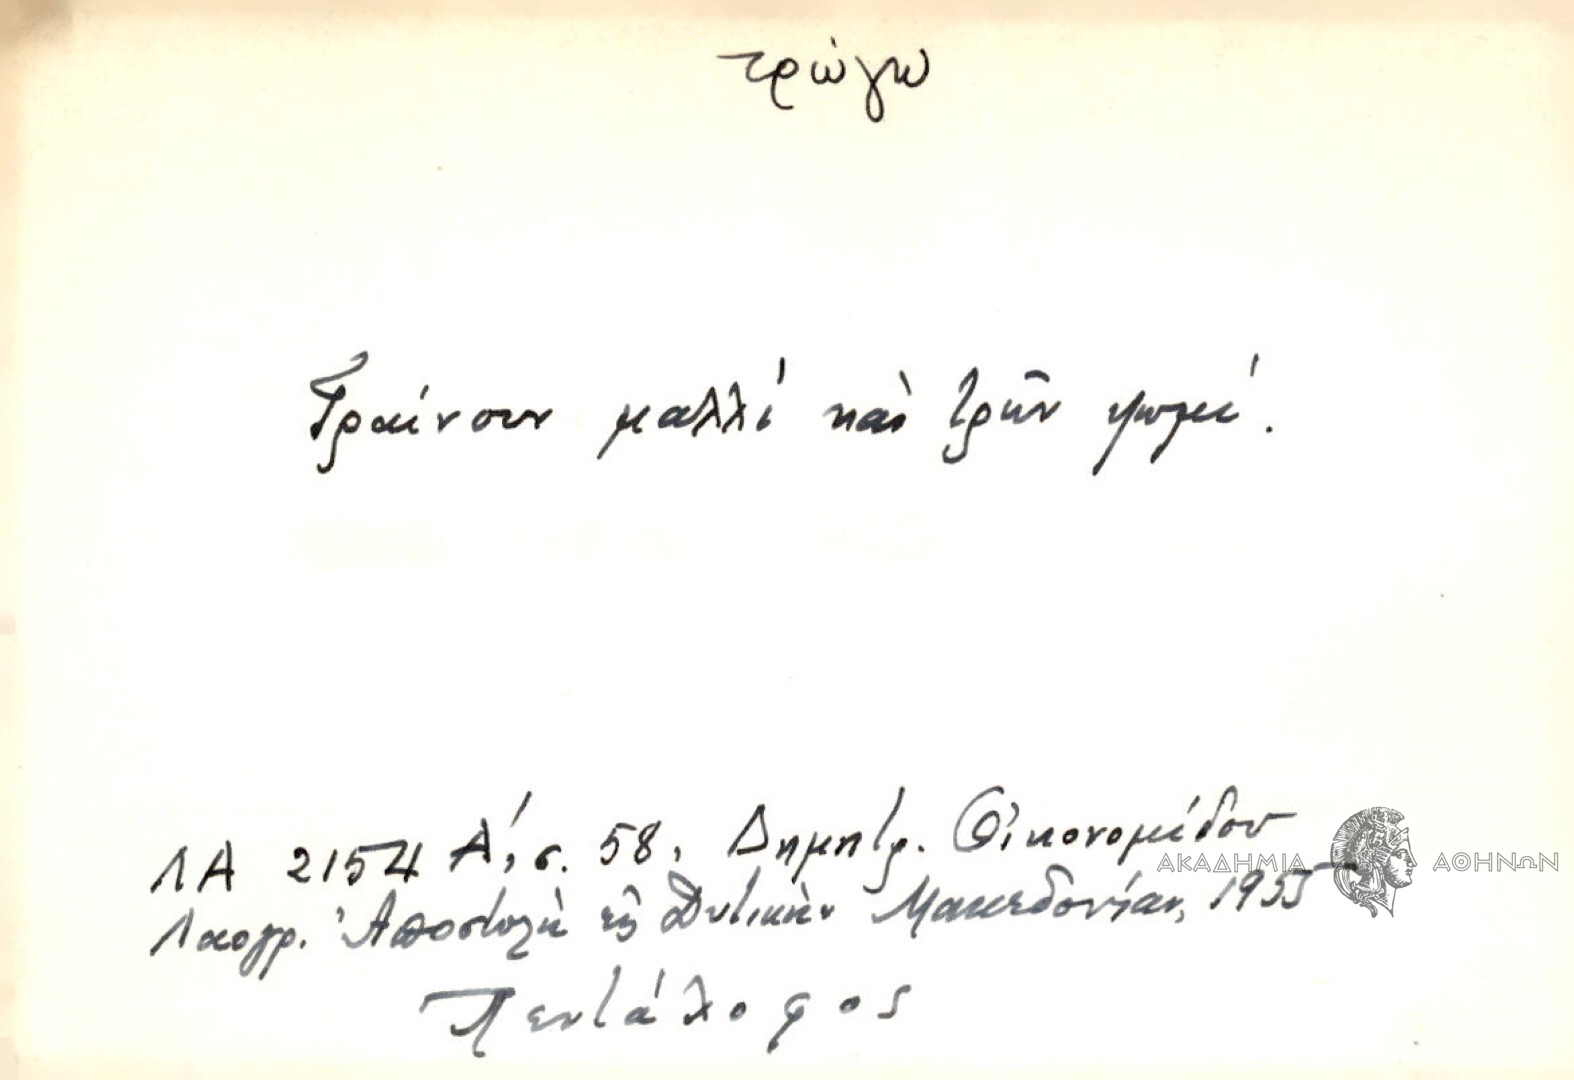 τρώγω
Τραίνουν μαλλί καὶ τρῶν ψωμί.
ΛΑ 2154 Α΄, σ. 58, Δημητρ. Οἰκονομίδου
Λαογρ. Ἀποστολὴ εἰς Δυτικὴν Μακεδονίαν, 1955
Πεντάλοφος
ΑΚΑΔΗΜΙΑ ΑΘΗΝΩΝ